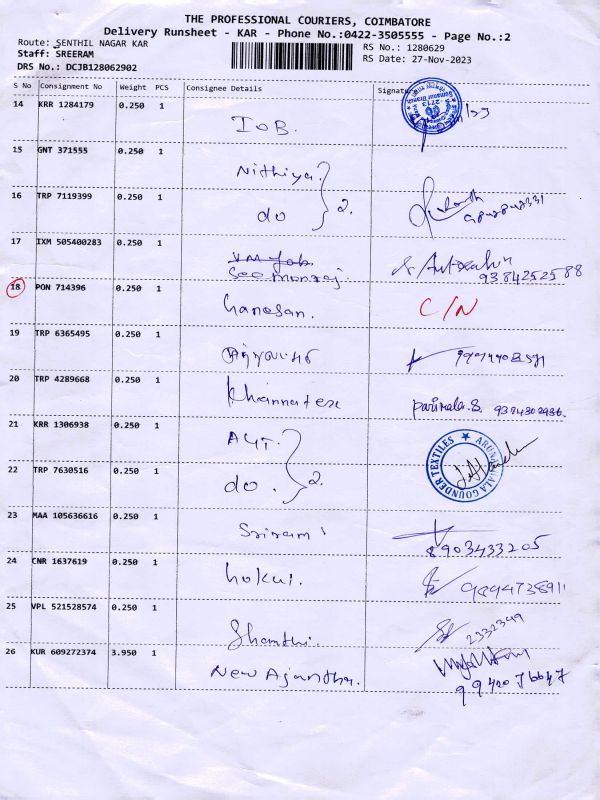 THE PROFESSIONAL COURIERS, COIMBATORE
Delivery Runsheet - KAR - Phone No.:0422-3505555 - Page No.:2
Route: SENTHIL NAGAR KAR
RS No.: 1280629
Staff: SREERAM
RS Date: 27-Nov-2023
DRS No.: DCJB128062902
S No Consignment No Weight PCS Consignee Details Signature
14 KRR 1284179 0.250 1 IOB.
15 GNT 371555 0.250 1 Nithiya.
16 TRP 7119399 0.250 1 do } 2.
17 IXM 505400283 0.250 1
18 PON 714396 0.250 1 C/N
19 TRP 6365495 0.250 1
20 TRP 4289668 0.250 1 Khannatex Parimala.S.
21 KRR 1306938 0.250 1 AGT.
ARUNACHALA GOUNDER TEXTILES
22 TRP 7630516 0.250 1 do. } 2.
23 MAA 105636616 0.250 1 Sriram 8903433205
24 CNR 1637619 0.250 1
25 VPL 521528574 0.250 1 Shanthi. 2332349
26 KUR 609272374 3.950 1 New Ajantha.